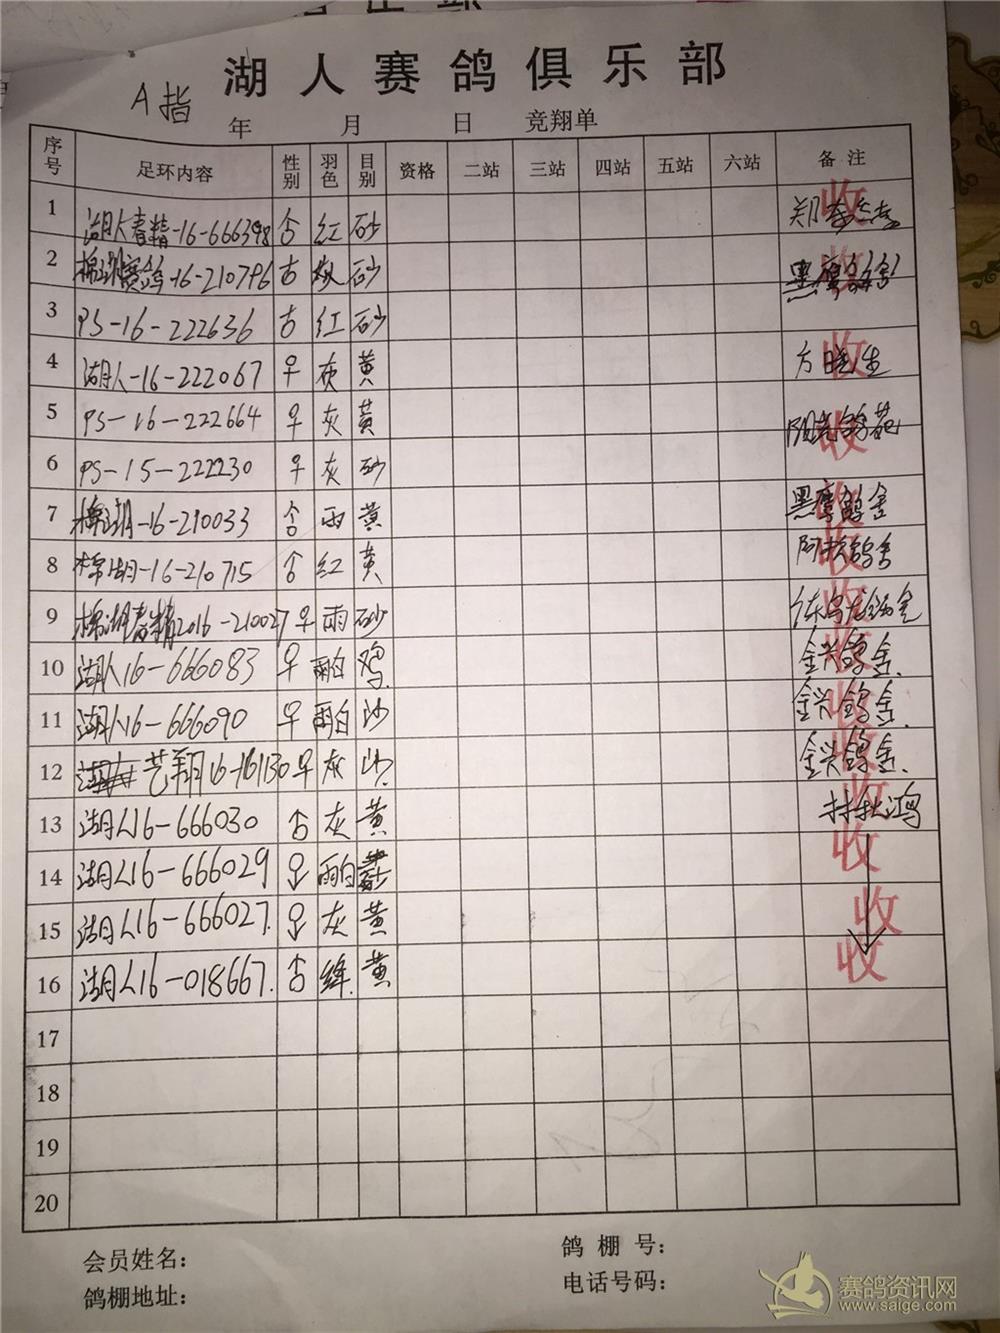 湖人赛鸽俱乐部
A指
年 月 日 竞翔单
序号 足环内容 性别 羽色 目别 资格 二站 三站 四站 五站 六站 备注
1 湖人春精-16-666398 红 砂 收
2 棉湖赛鸽-16-210796 灰 砂 黑鹰鸽舍 收
3 PS-16-222636 红 砂
4 湖人-16-222067 ♀ 灰 黄 方晓生 收
5 PS-16-222664 ♀ 灰 黄 阳光鸽苑 收
6 PS-15-222230 ♀ 灰 砂
7 棉湖-16-210033 雨 黄 黑鹰鸽舍 收
8 棉湖-16-210715 红 黄 鸽舍 收
9 棉湖春精2016-210027 ♀ 雨 砂 收
10 湖人16-666083 ♀ 雨白 鸡 金兴鸽舍 收
11 湖人16-666090 ♀ 雨白 沙 金兴鸽舍 收
12 艺翔16-161130 ♀ 灰 沙 金兴鸽舍 收
13 湖人16-666030 灰 黄 林秋鸿 收
14 湖人16-666029 ♀ 雨白 收
15 湖人16-666027 ♀ 灰 黄 收
16 湖人16-018667 绛 黄 收
17
18
19
20
会员姓名： 鸽棚号：
鸽棚地址： 电话号码：
赛鸽资讯网
www.saige.com